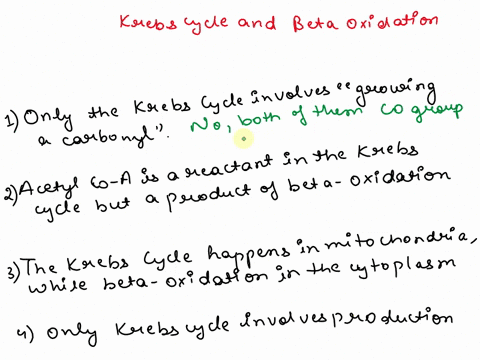 Krebs cycle and Beta oxidation
1) Only the Krebs Cycle involves "growing
a carbonyl". No, both of them CO group
2) Acetyl Co-A is a reactant in the Krebs
cycle but a product of beta-oxidation
3) The Krebs Cycle happens in mitochondria,
while beta-oxidation in the cytoplasm
4) Only Krebs cycle involves production